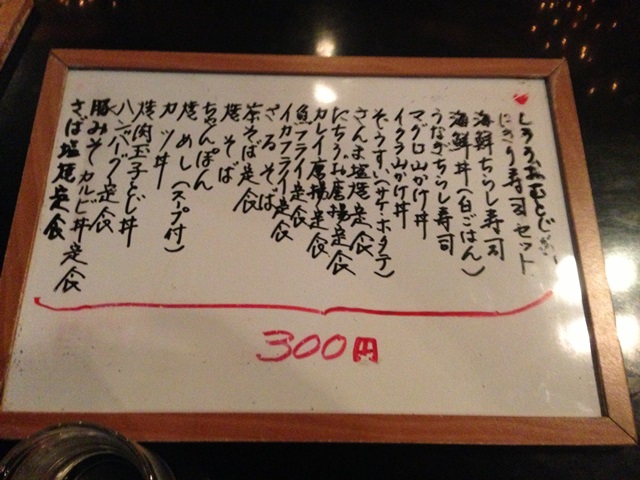 にぎり寿司セット
海鮮ちらし寿司
海鮮丼(白ごはん)
うなぎちらし寿司
マグロ山かけ丼
イクラ山かけ丼
ぞうすい(サケ・ホタテ)
さんま塩焼定食
カレイ唐揚定食
魚フライ定食
イカフライ定食
ざるそば
茶そば定食
焼そば
ちゃんぽん
焼めし(スープ付)
カツ丼
焼肉玉子とじ丼
ハンバーグ定食
豚みそカルビ丼定食
さば塩焼定食
300円